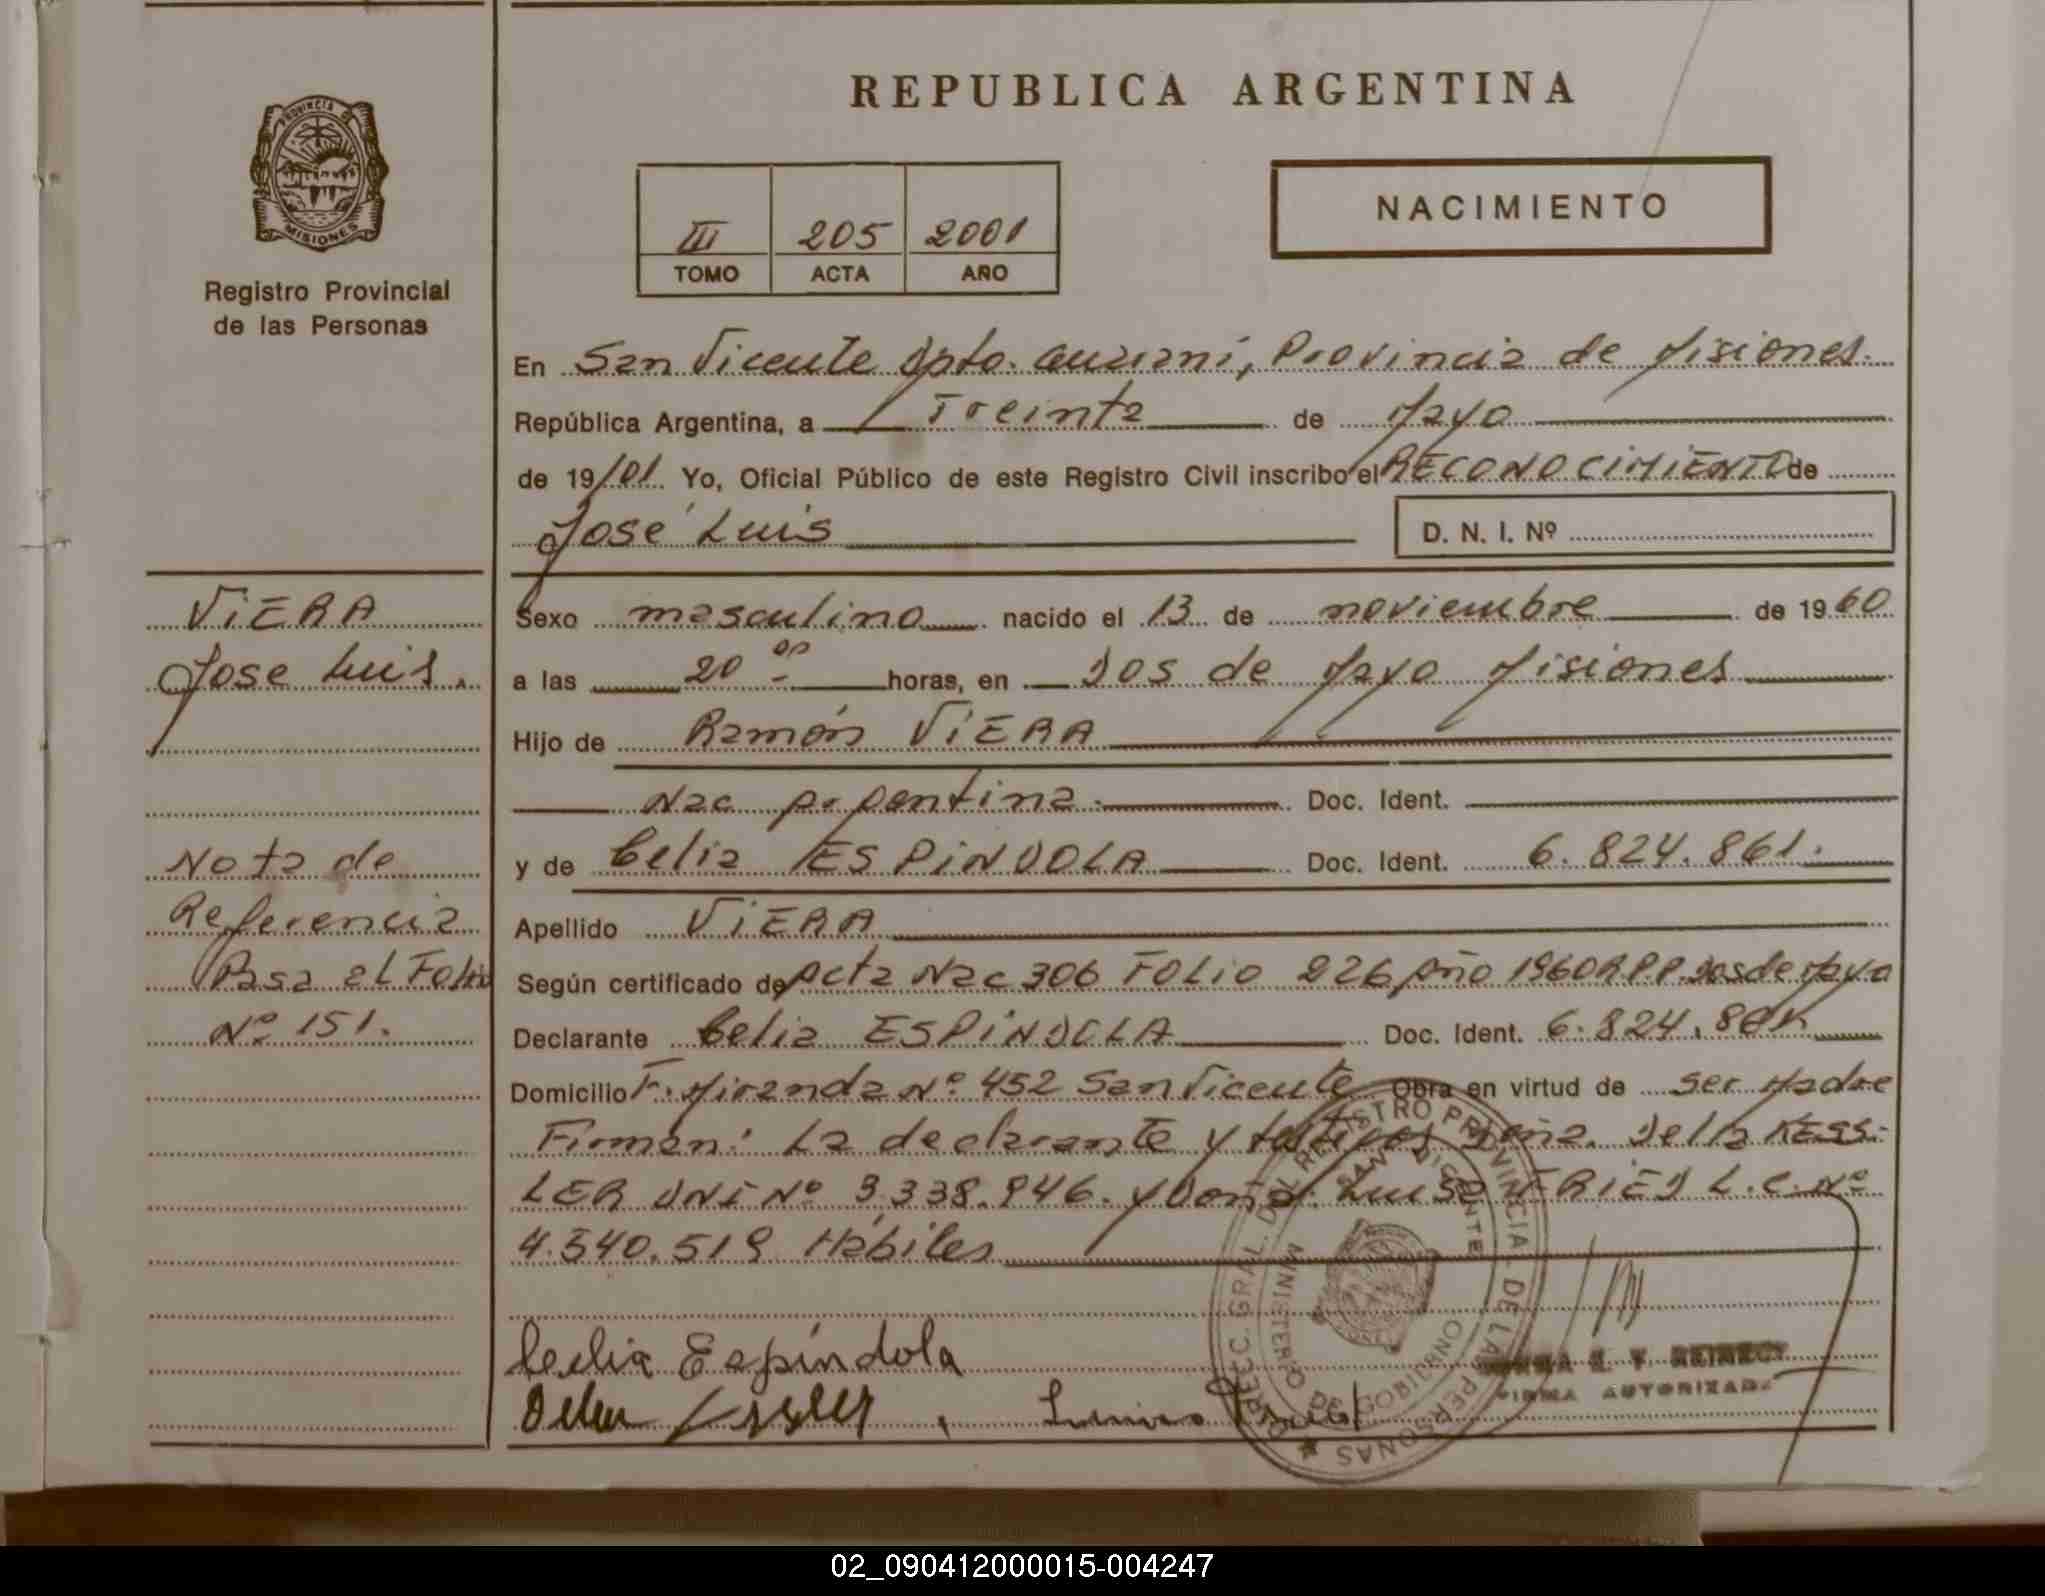 REPUBLICA ARGENTINA
PROVINCIA DE
MISIONES
Registro Provincial
de las Personas
III 205 2001
TOMO ACTA AÑO
NACIMIENTO
En San Vicente Dpto. Guaraní, Provincia de Misiones.
República Argentina, a Treinta de Mayo
de 19/01. Yo, Oficial Público de este Registro Civil inscribo el RECONOCIMIENTO de
José Luis D. N. I. Nº
VIERA
Jose Luis.
Sexo masculino nacido el 13 de noviembre de 1960
a las 20 00 horas, en Dos de Mayo Misiones
Hijo de Ramón VIERA
Nac Argentina. Doc. Ident.
y de Celia ESPINDOLA Doc. Ident. 6.824.861.
Nota de
Referencia
Pasa al Folio
Nº 151.
Apellido VIERA
Según certificado de Acta Nac 306 FOLIO 226 Año 1960 R.P.P. Dos de Mayo
Declarante Celia ESPINDOLA Doc. Ident. 6.824.861.
Domicilio F. Miranda Nº 452 San Vicente Obra en virtud de ser Madre
Firman: La declarante y testigos Doña. Delia KESS-
LER DNI Nº 3.338.946. y Doña. Luisa FRIED L.C. Nº
4.540.519 Hábiles
Celia Espíndola
FIRMA AUTORIZADA
DIRECC. GRAL. DEL REGISTRO PROVINCIAL DE LAS PERSONAS
SAN VICENTE
MINISTERIO DE GOBIERNO
02_090412000015-004247